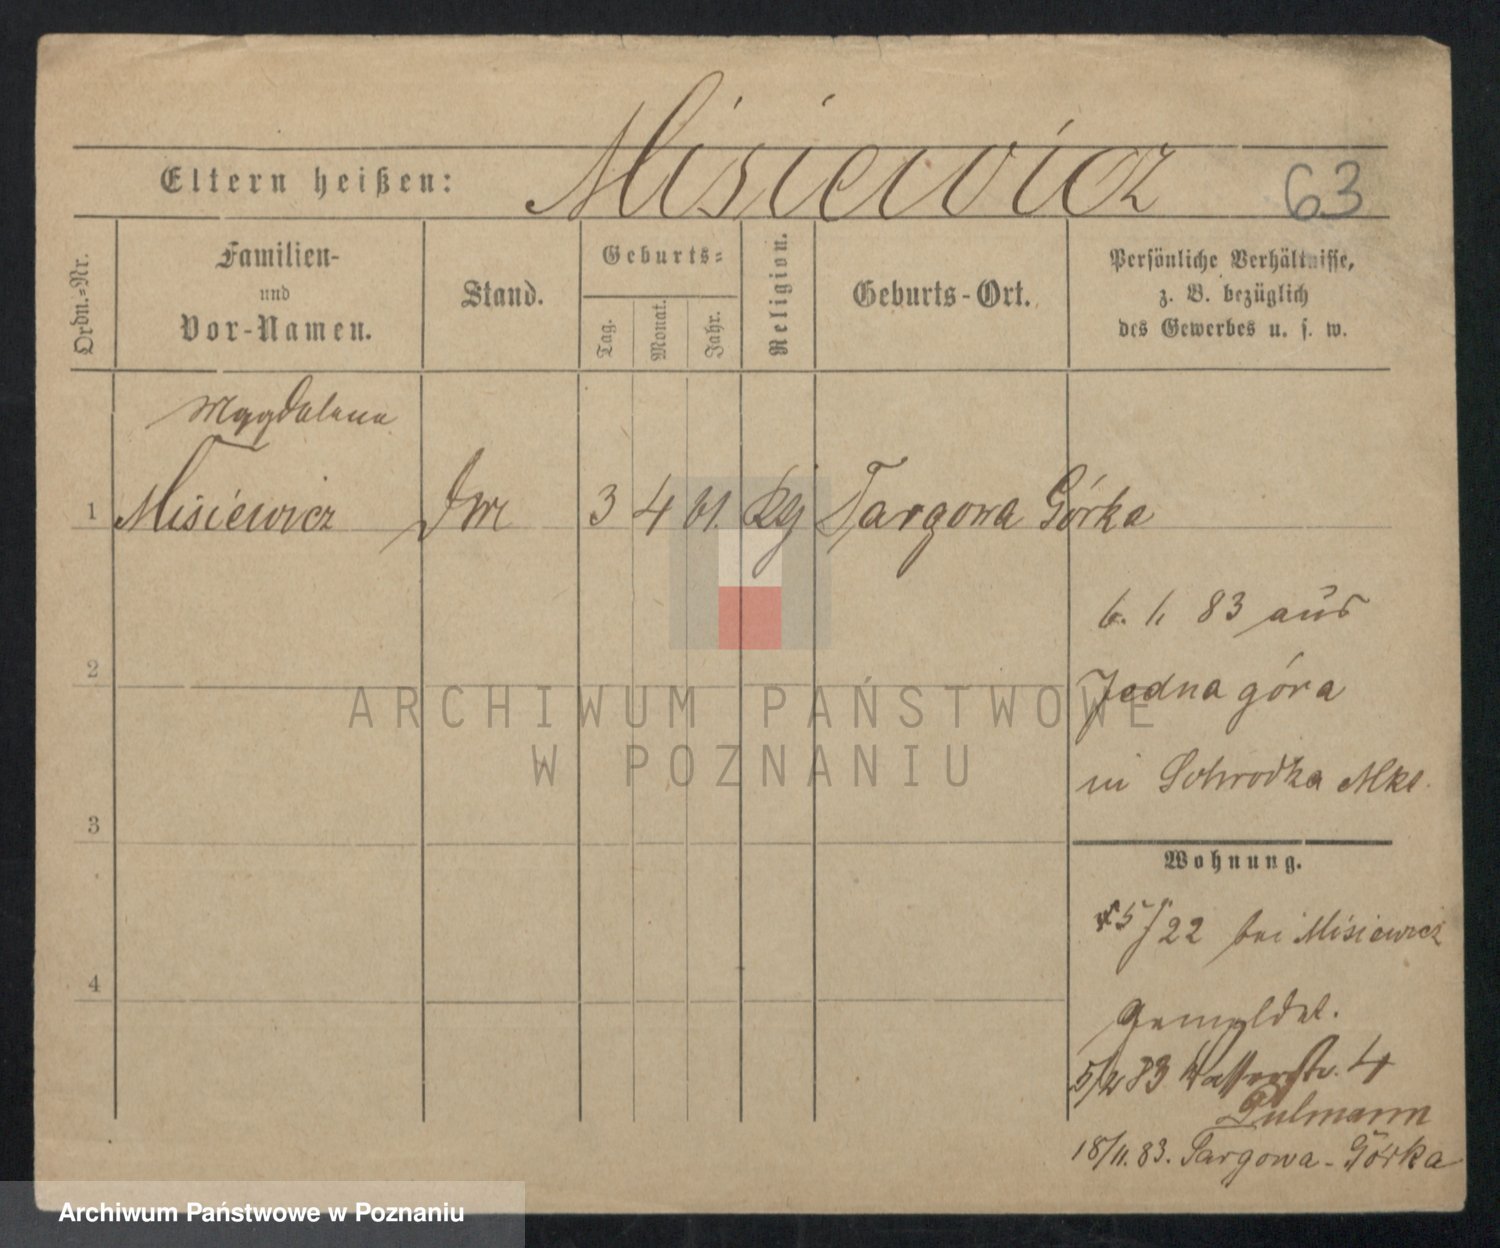 Misiewicz
Eltern heißen:
63
Ordn.-Nr.
Familien-
und
Vor-Namen.
Stand.
Geburts-
Tag.
Monat.
Jahr.
Religion.
Geburts-Ort.
Persönliche Verhältnisse,
z. B. bezüglich
des Gewerbes u. s. w.
Magdalena
1 Misiewicz 3 4 61. Targowa Górka
6. 1. 83 aus
Jedna góra
in Schrodka
2
3
4
Wohnung.
22 bei Misiewicz
gemeldet.
5/2 83 Wasserstr. 4
Pulmann
18/11. 83. Targowa-Górka
ARCHIWUM PAŃSTWOWE
W POZNANIU
Archiwum Państwowe w Poznaniu